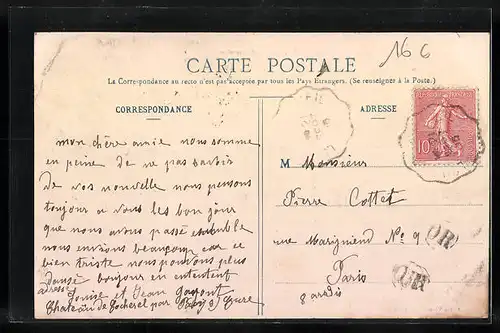 16 C
CARTE POSTALE
La Correspondance au recto n'est pas acceptée par tous les Pays Étrangers. (Se renseigner à la Poste.)
CORRESPONDANCE
ADRESSE
10
mon chère amie nous somme
en peine de ne pas
de vos nouvelle nous pensons
toujour a vous les bon jour
que nous avons passé
nous envions beaucoup car ce
bien triste nous pouvons plus
dansé bonjour en ententent
adresse Louise et Jean
Chateau de Cocherel par Pacy s Eure
M Monsieur
Pierre Cottet
rue Marigniend No 9
Paris
OR
OR